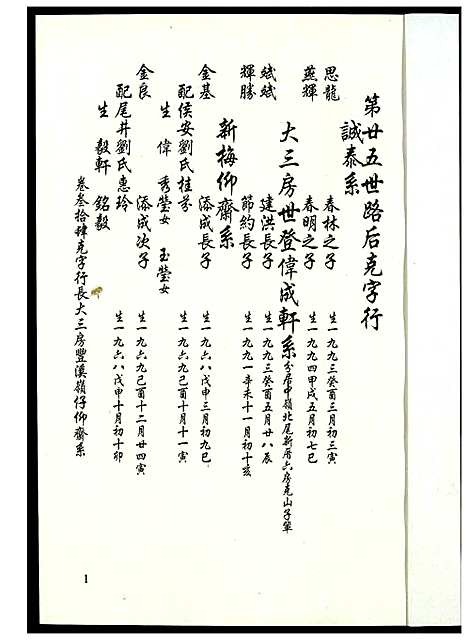 第廿五世路后克字行
誠泰系
思龍 春林之子 生一九九三癸酉三月初三寅
燕輝 春明之子 生一九九四甲戌五月初七巳
大三房世登偉成軒系 分居中嶺北尾新厝六房克山子單
斌斌 建洪長子 生一九九三癸酉五月廿八辰
輝勝 節約長子 生一九九一辛未十一月初十亥
新梅仰齋系
金基 添成長子 生一九六八戊申三月初九巳
配侯安劉氏桂芬 生一九六九己酉十月十一寅
生 偉 秀瑩女 玉瑩女
金良 添成次子 生一九六九己酉十二月廿四寅
配尾井劉氏惠玲 生一九六八戊申十月初十卯
生 毅軒 銘毅
卷叁拾肆克字行長大三房豐溪嶺仔仰齋系
1